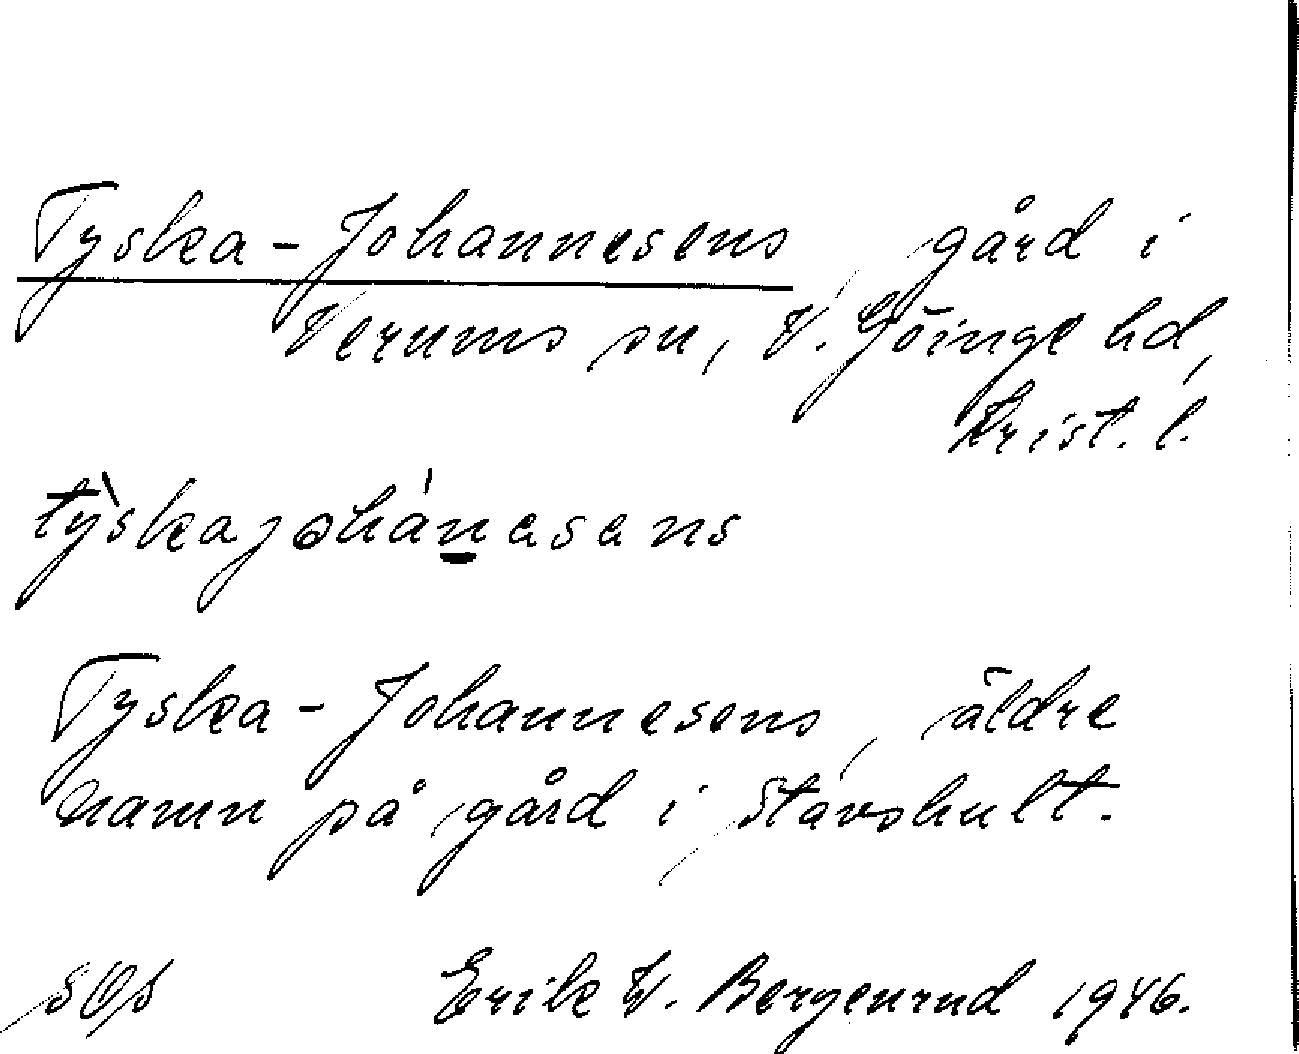 Tyska-Johannesens, gård i
Verums sn, V. Göinge hd,
Krist. l.
tỳskajohánasans
Tyska-Johannesens, äldre
namn på gård i Stavshult.
Erik W. Bergenrud 1946.